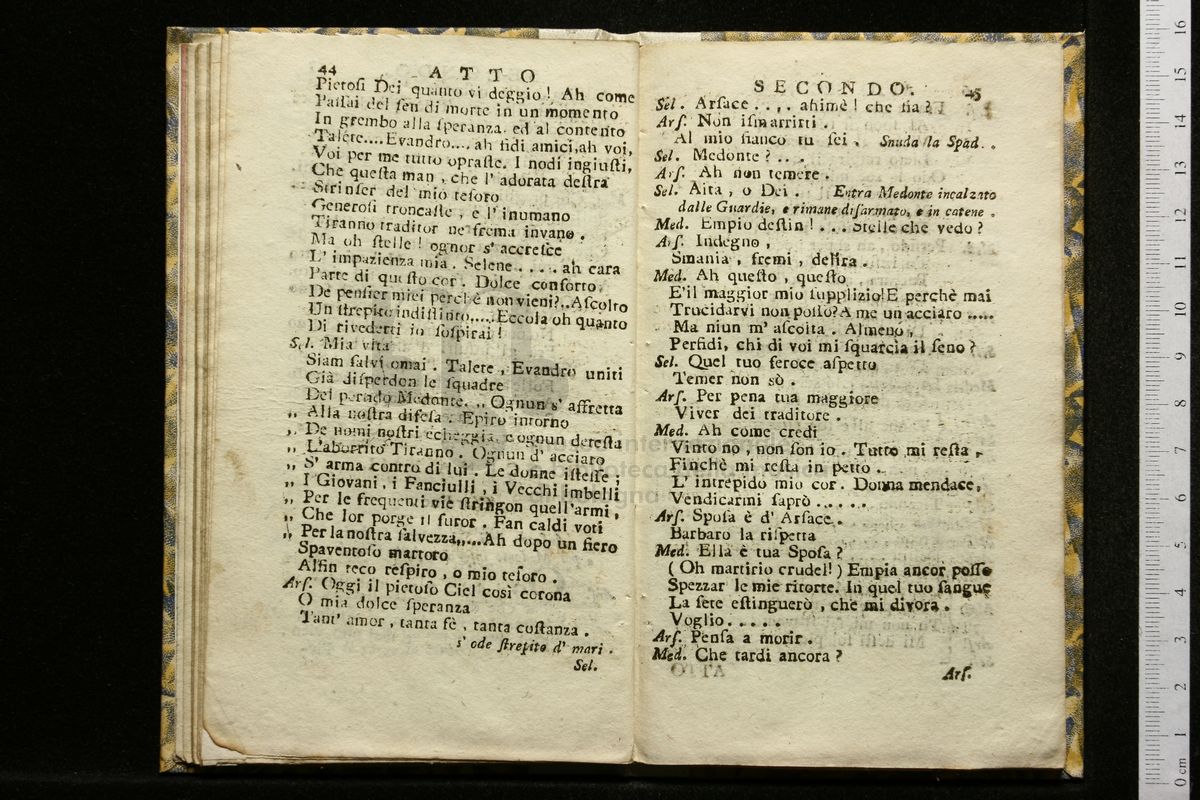 44 ATTO
Pietosi Dei quanto vi deggio! Ah come
Passai del sen di morte in un momento
In grembo alla speranza, ed al contento
Talete....Evandro.... ah fidi amici, ah voi,
Voi per me tutto opraste. I nodi ingiusti,
Che questa man, che l' adorata destra
Strinser del mio tesoro
Generosi troncaste, e l' inumano
Tiranno traditor ne frema invano.
Ma oh stelle! ognor s' accresce
L' impazienza mia. Selene..... ah cara
Parte di questo cor. Dolce conforto
De pensier miei perchè non vieni?..Ascolto
Un strepito indistinto.....Eccola oh quanto
Di rivederti io sospirai!
Sel. Mia vita
Siam salvi omai. Talete, Evandro uniti
Già disperdon le squadre
Del perfido Medonte. ,, Ognun s' affretta
,, Alla nostra difesa. Epiro intorno
,, De nomi nostri echeggia, e ognun detesta
,, L'aborrito Tiranno. Ognun d' acciaro
,, S' arma contro di lui. Le donne istesse;
,, I Giovani, i Fanciulli, i Vecchi imbelli
,, Per le frequenti vie stringon quell'armi,
,, Che lor porge il furor. Fan caldi voti
,, Per la nostra salvezza,,....Ah dopo un fiero
Spaventoso martoro
Alfin teco respiro, o mio tesoro.
Ars. Oggi il pietoso Ciel così corona
O mia dolce speranza
Tant' amor, tanta fè, tanta costanza.
s' ode strepito d' mari.
Sel.
SECONDO. 45
Sel. Arsace.... ahimè! che fia?
Ars. Non ismarrirti.
Al mio fianco tu sei. Snuda la Spad.
Sel. Medonte?...
Ars. Ah non temere.
Sel. Aita, o Dei. Entra Medonte incalzato
dalle Guardie, e rimane disarmato, e in catene.
Med. Empio destin!... Stelle che vedo?
Ars. Indegno,
Smania, fremi, delira.
Med. Ah questo, questo
E'il maggior mio supplizio!E perchè mai
Trucidarvi non posso?A me un acciaro.....
Ma niun m' ascolta. Almeno,
Perfidi, chi di voi mi squarcia il seno?
Sel. Quel tuo feroce aspetto
Temer non sò.
Ars. Per pena tua maggiore
Viver dei traditore.
Med. Ah come credi
Vinto no, non son io. Tutto mi resta,
Finchè mi resta in petto.
L' intrepido mio cor. Donna mendace,
Vendicarmi saprò.....
Ars. Sposa è d' Arsace.
Barbaro la rispetta
Med. Ella è tua Sposa?
(Oh martirio crudel!) Empia ancor posso
Spezzar le mie ritorte. In quel tuo sangue
La sete estinguerò, che mi divora.
Voglio.....
Ars. Pensa a morir.
Med. Che tardi ancora?
Ars.